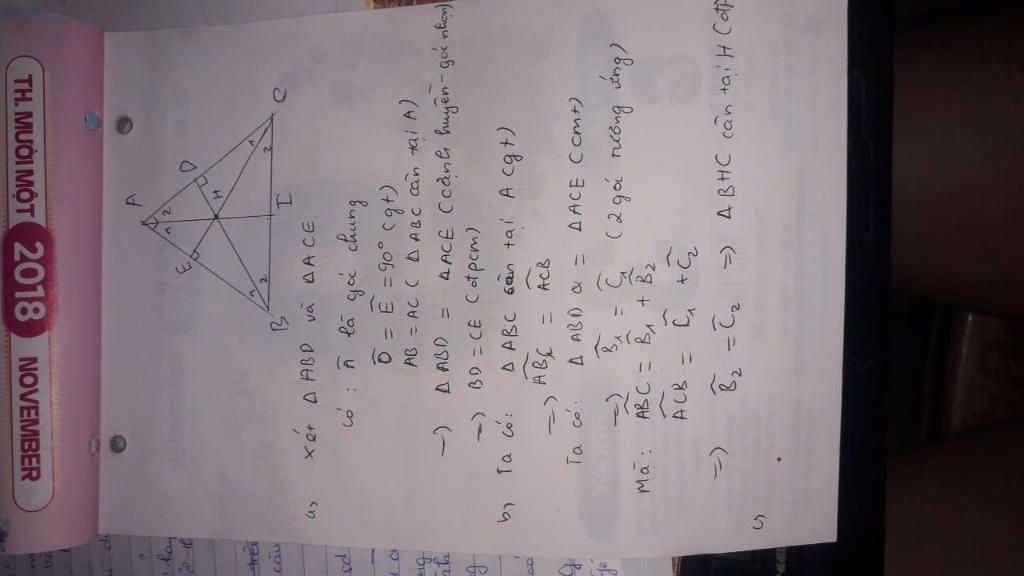 TH. MƯỜI MỘT 2018 NOVEMBER
A
E
D
H
B
I
C
1 2
1 2
1 2
a, xét Δ ABD và Δ ACE
có: Â là góc chung
D̂ = Ê = 90° (gt)
AB = AC (Δ ABC cân tại A)
=) Δ ABD = Δ ACE (cạnh huyền - góc nhọn)
=) BD = CE (đpcm)
b, Ta có: Δ ABC cân tại A (gt)
=) ABC = ACB
Ta có: Δ ABD = Δ ACE (cmt)
=) B̂1 = Ĉ1 (2 góc tương ứng)
Mà: ABC = B̂1 + B̂2
ACB = Ĉ1 + Ĉ2
=) B̂2 = Ĉ2 => Δ BHC cân tại H (đp
c,